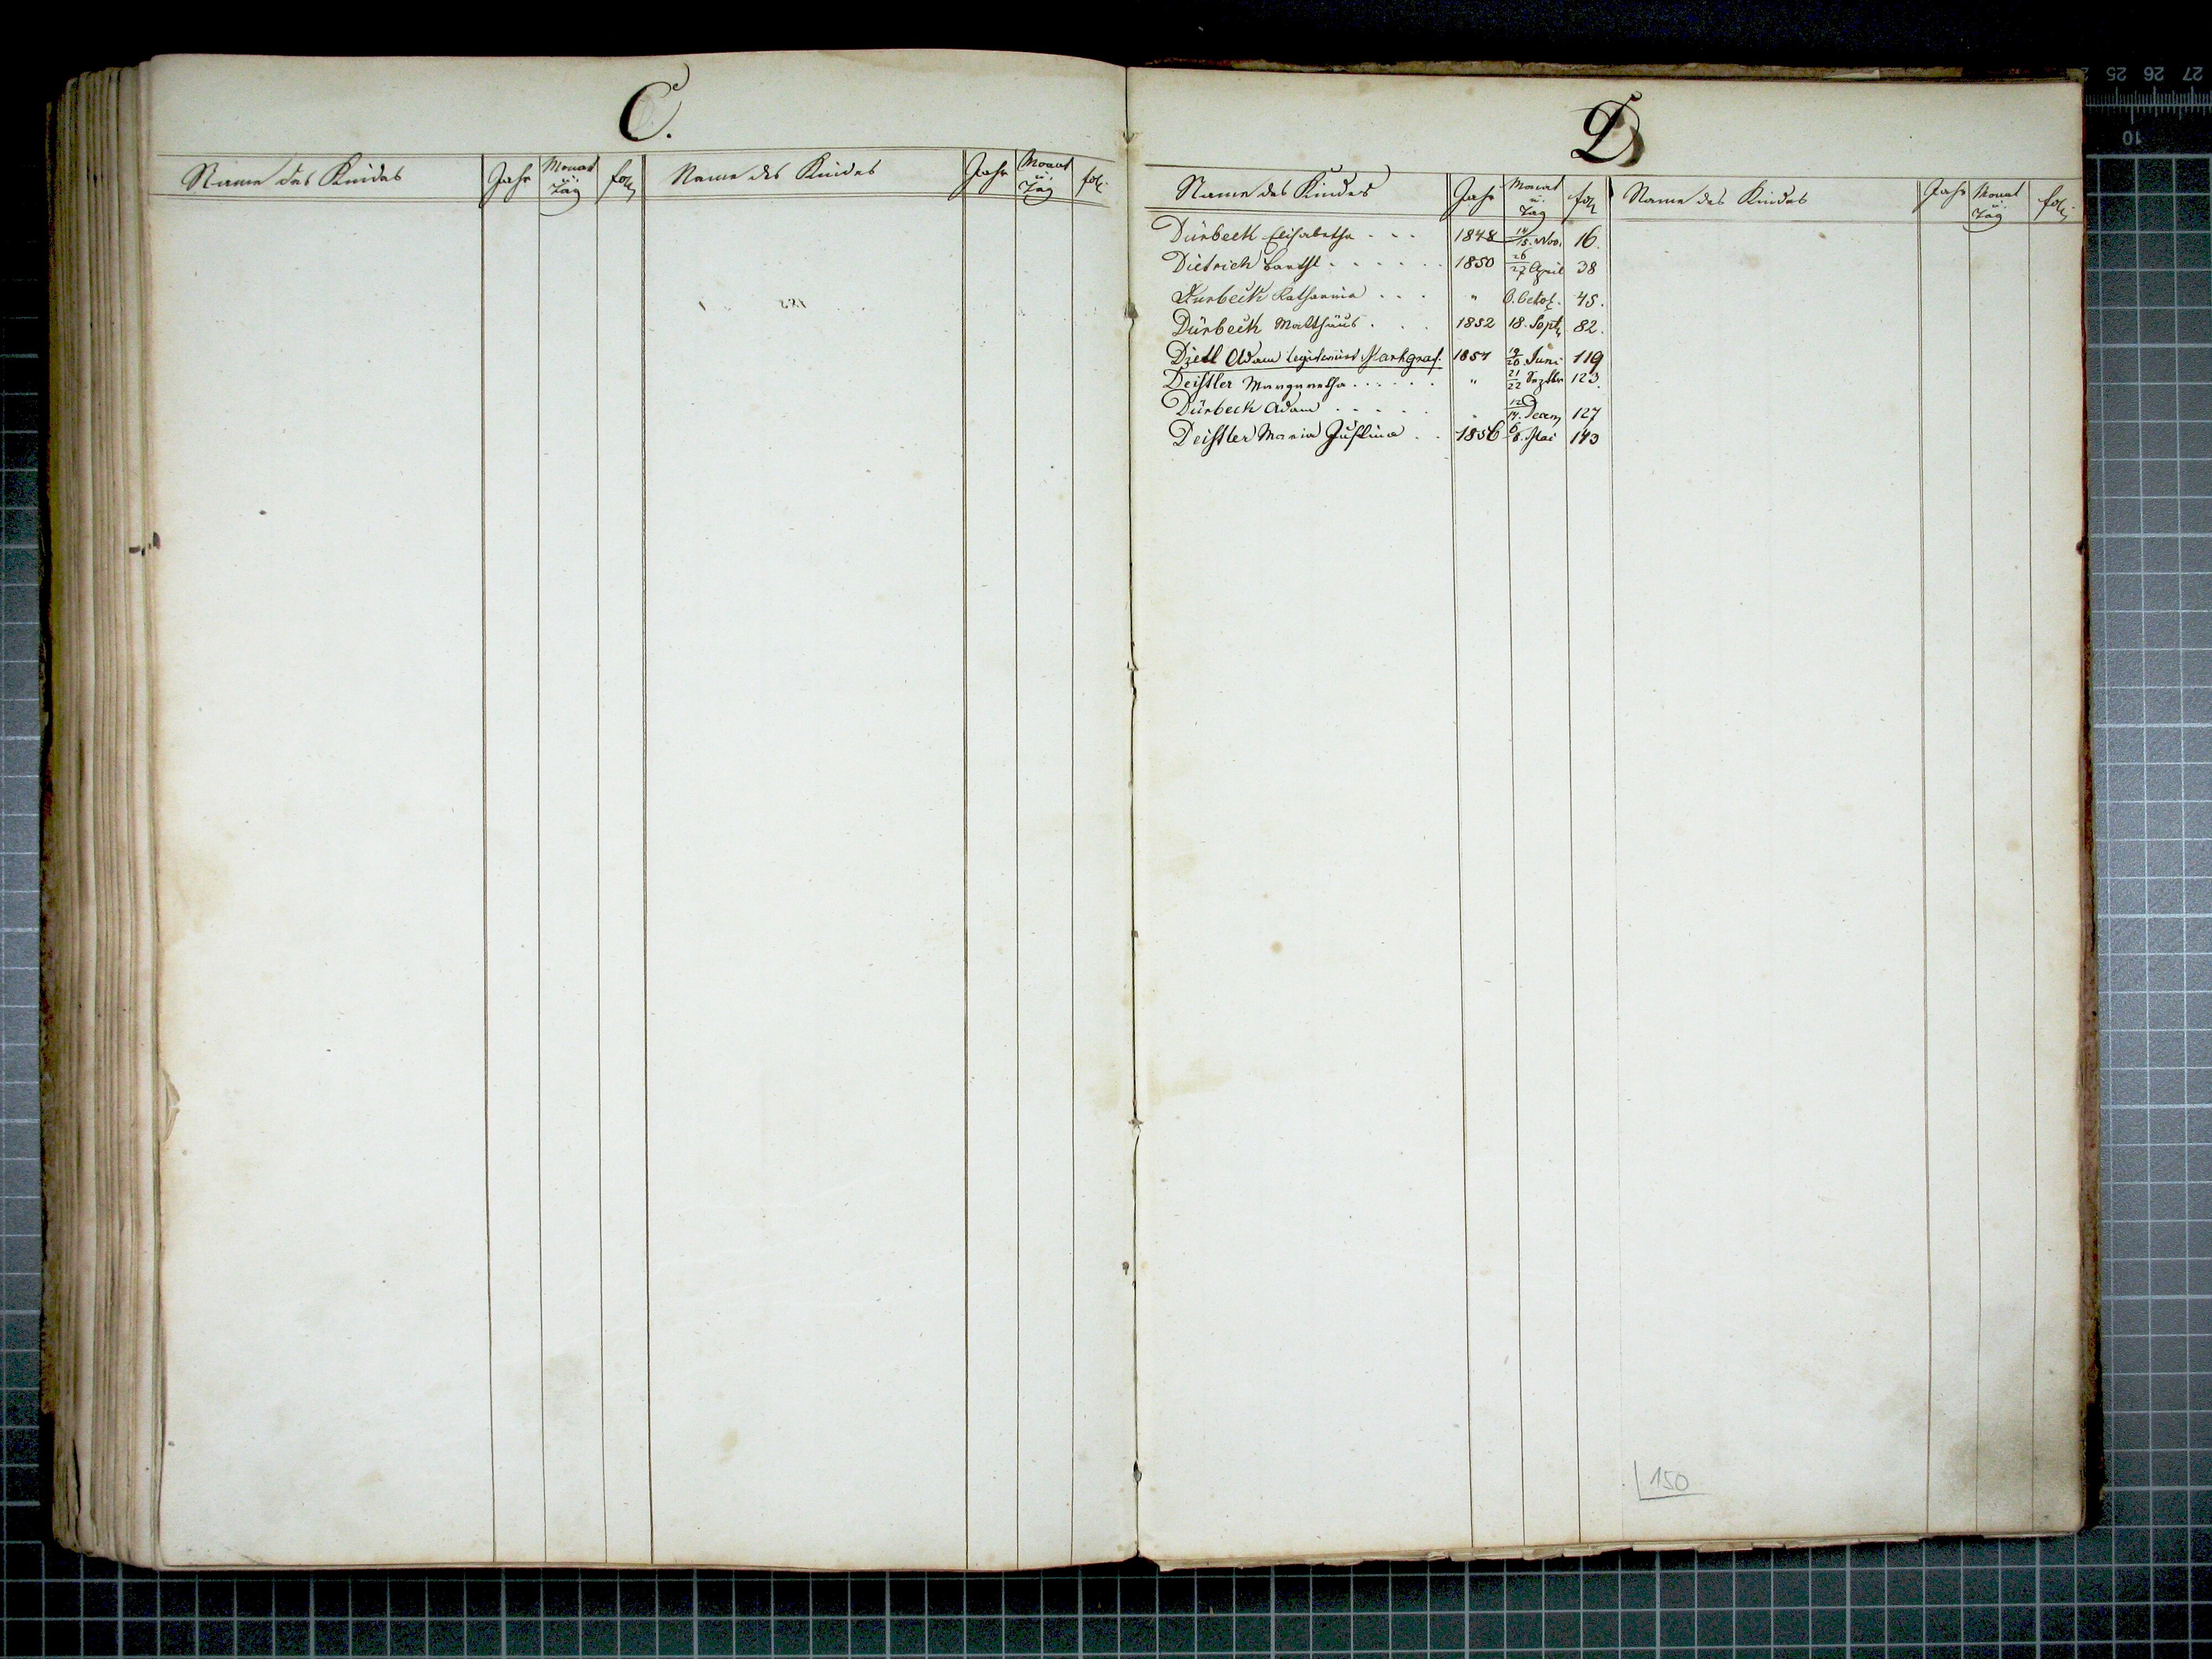 C.
Name des Kindes Jahr Monat u. Tag fol. Name des Kindes Jahr Monat u. Tag fol.
D
Name des Kindes Jahr Monat u. Tag fol. Name des Kindes Jahr Monat u. Tag fol.
Dürbeck Elisabetha . . . 1848 14/15. Nov. 16.
Dietrich Barthl . . . . . . 1850 26/27 April 38
Durbeck Katharina . . . " 6. Octob. 45.
Dürbeck Matthäus . . . 1852 18. Sept. 82.
Dietl Adam legitimirt Markgraf. 1854 19/20 Juni 119
Deistler Margaretha . . . . . . " 21/22 Septbr 123.
Dürbeck Adam . . . . . " 12/14. Decem 127
Deistler Maria Justina . . 1856 6/8. Mai 143
150
25 26 27
10